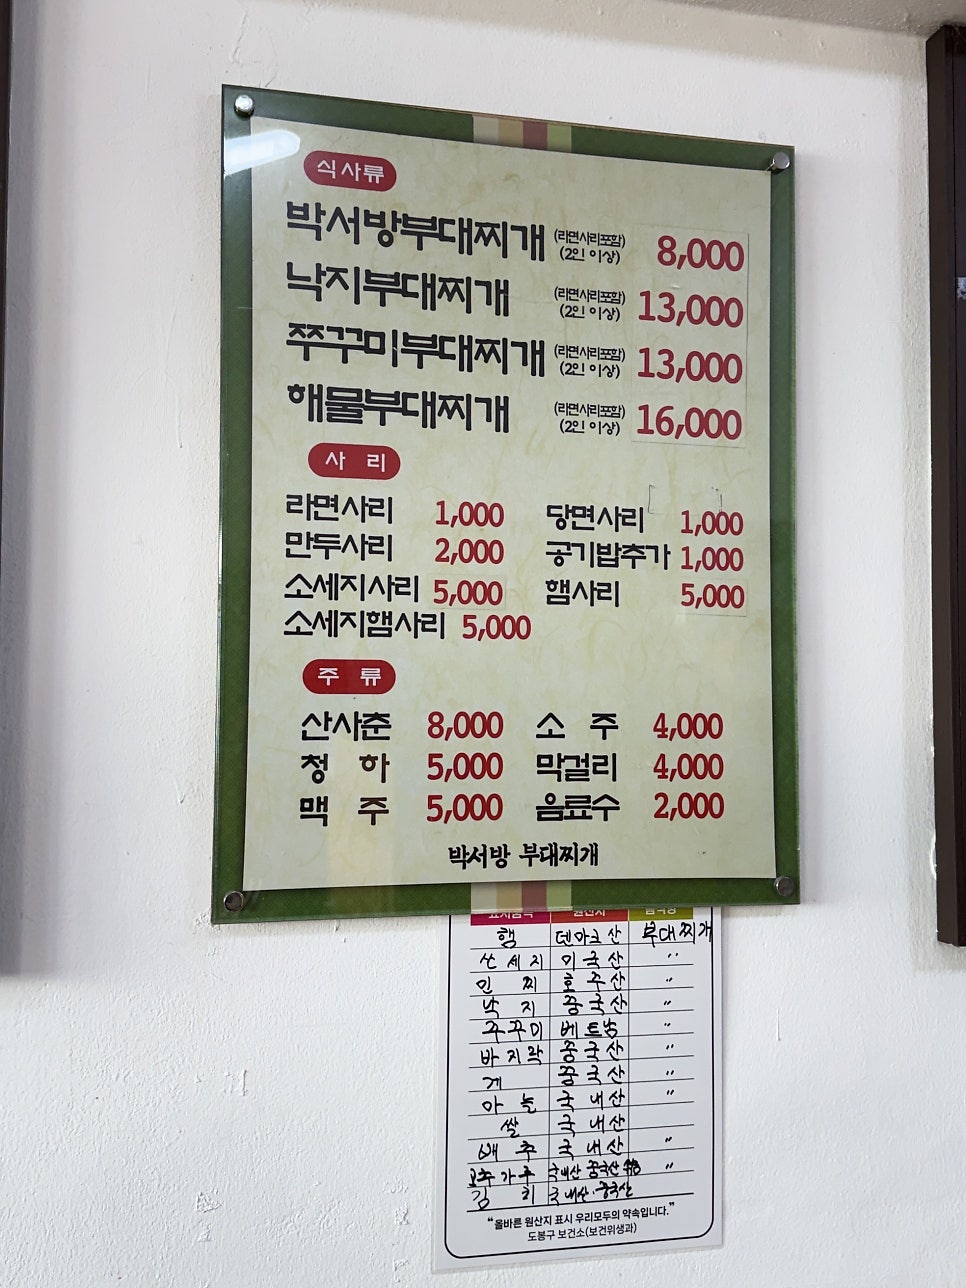 식사류
박서방부대찌개 (라면사리포함) (2인 이상) 8,000
낙지부대찌개 (라면사리포함) (2인 이상) 13,000
쭈꾸미부대찌개 (라면사리포함) (2인 이상) 13,000
해물부대찌개 (라면사리포함) (2인 이상) 16,000
사 리
라면사리 1,000 당면사리 1,000
만두사리 2,000 공기밥추가 1,000
소세지사리 5,000 햄사리 5,000
소세지햄사리 5,000
주 류
산사춘 8,000 소 주 4,000
청 하 5,000 막걸리 4,000
맥 주 5,000 음료수 2,000
박서방 부대찌개
햄 덴마크산 부대찌개
쏘세지 미국산 "
민찌 호주산 "
낙지 중국산 "
쭈꾸미 베트남 "
바지락 중국산 "
게 중국산 "
마늘 국내산 "
쌀 국내산
배추 국내산 "
고추가루 국내산 중국산 "
김치 국내산·중국산
"올바른 원산지 표시 우리모두의 약속입니다."
도봉구 보건소(보건위생과)